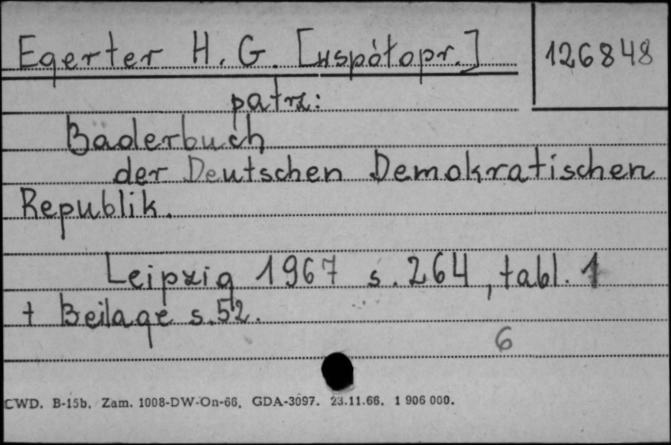 Egerter H. G. [współopr.]
126848
patrz:
Bäderbuch
der Deutschen Demokratischen
Republik.
Leipzig 1967 s. 264, tabl. 1
+ Beilage s. 52.
6
CWD. B-15b. Zam. 1008-DW-On-66. GDA-3097. 23.11.66. 1 906 000.